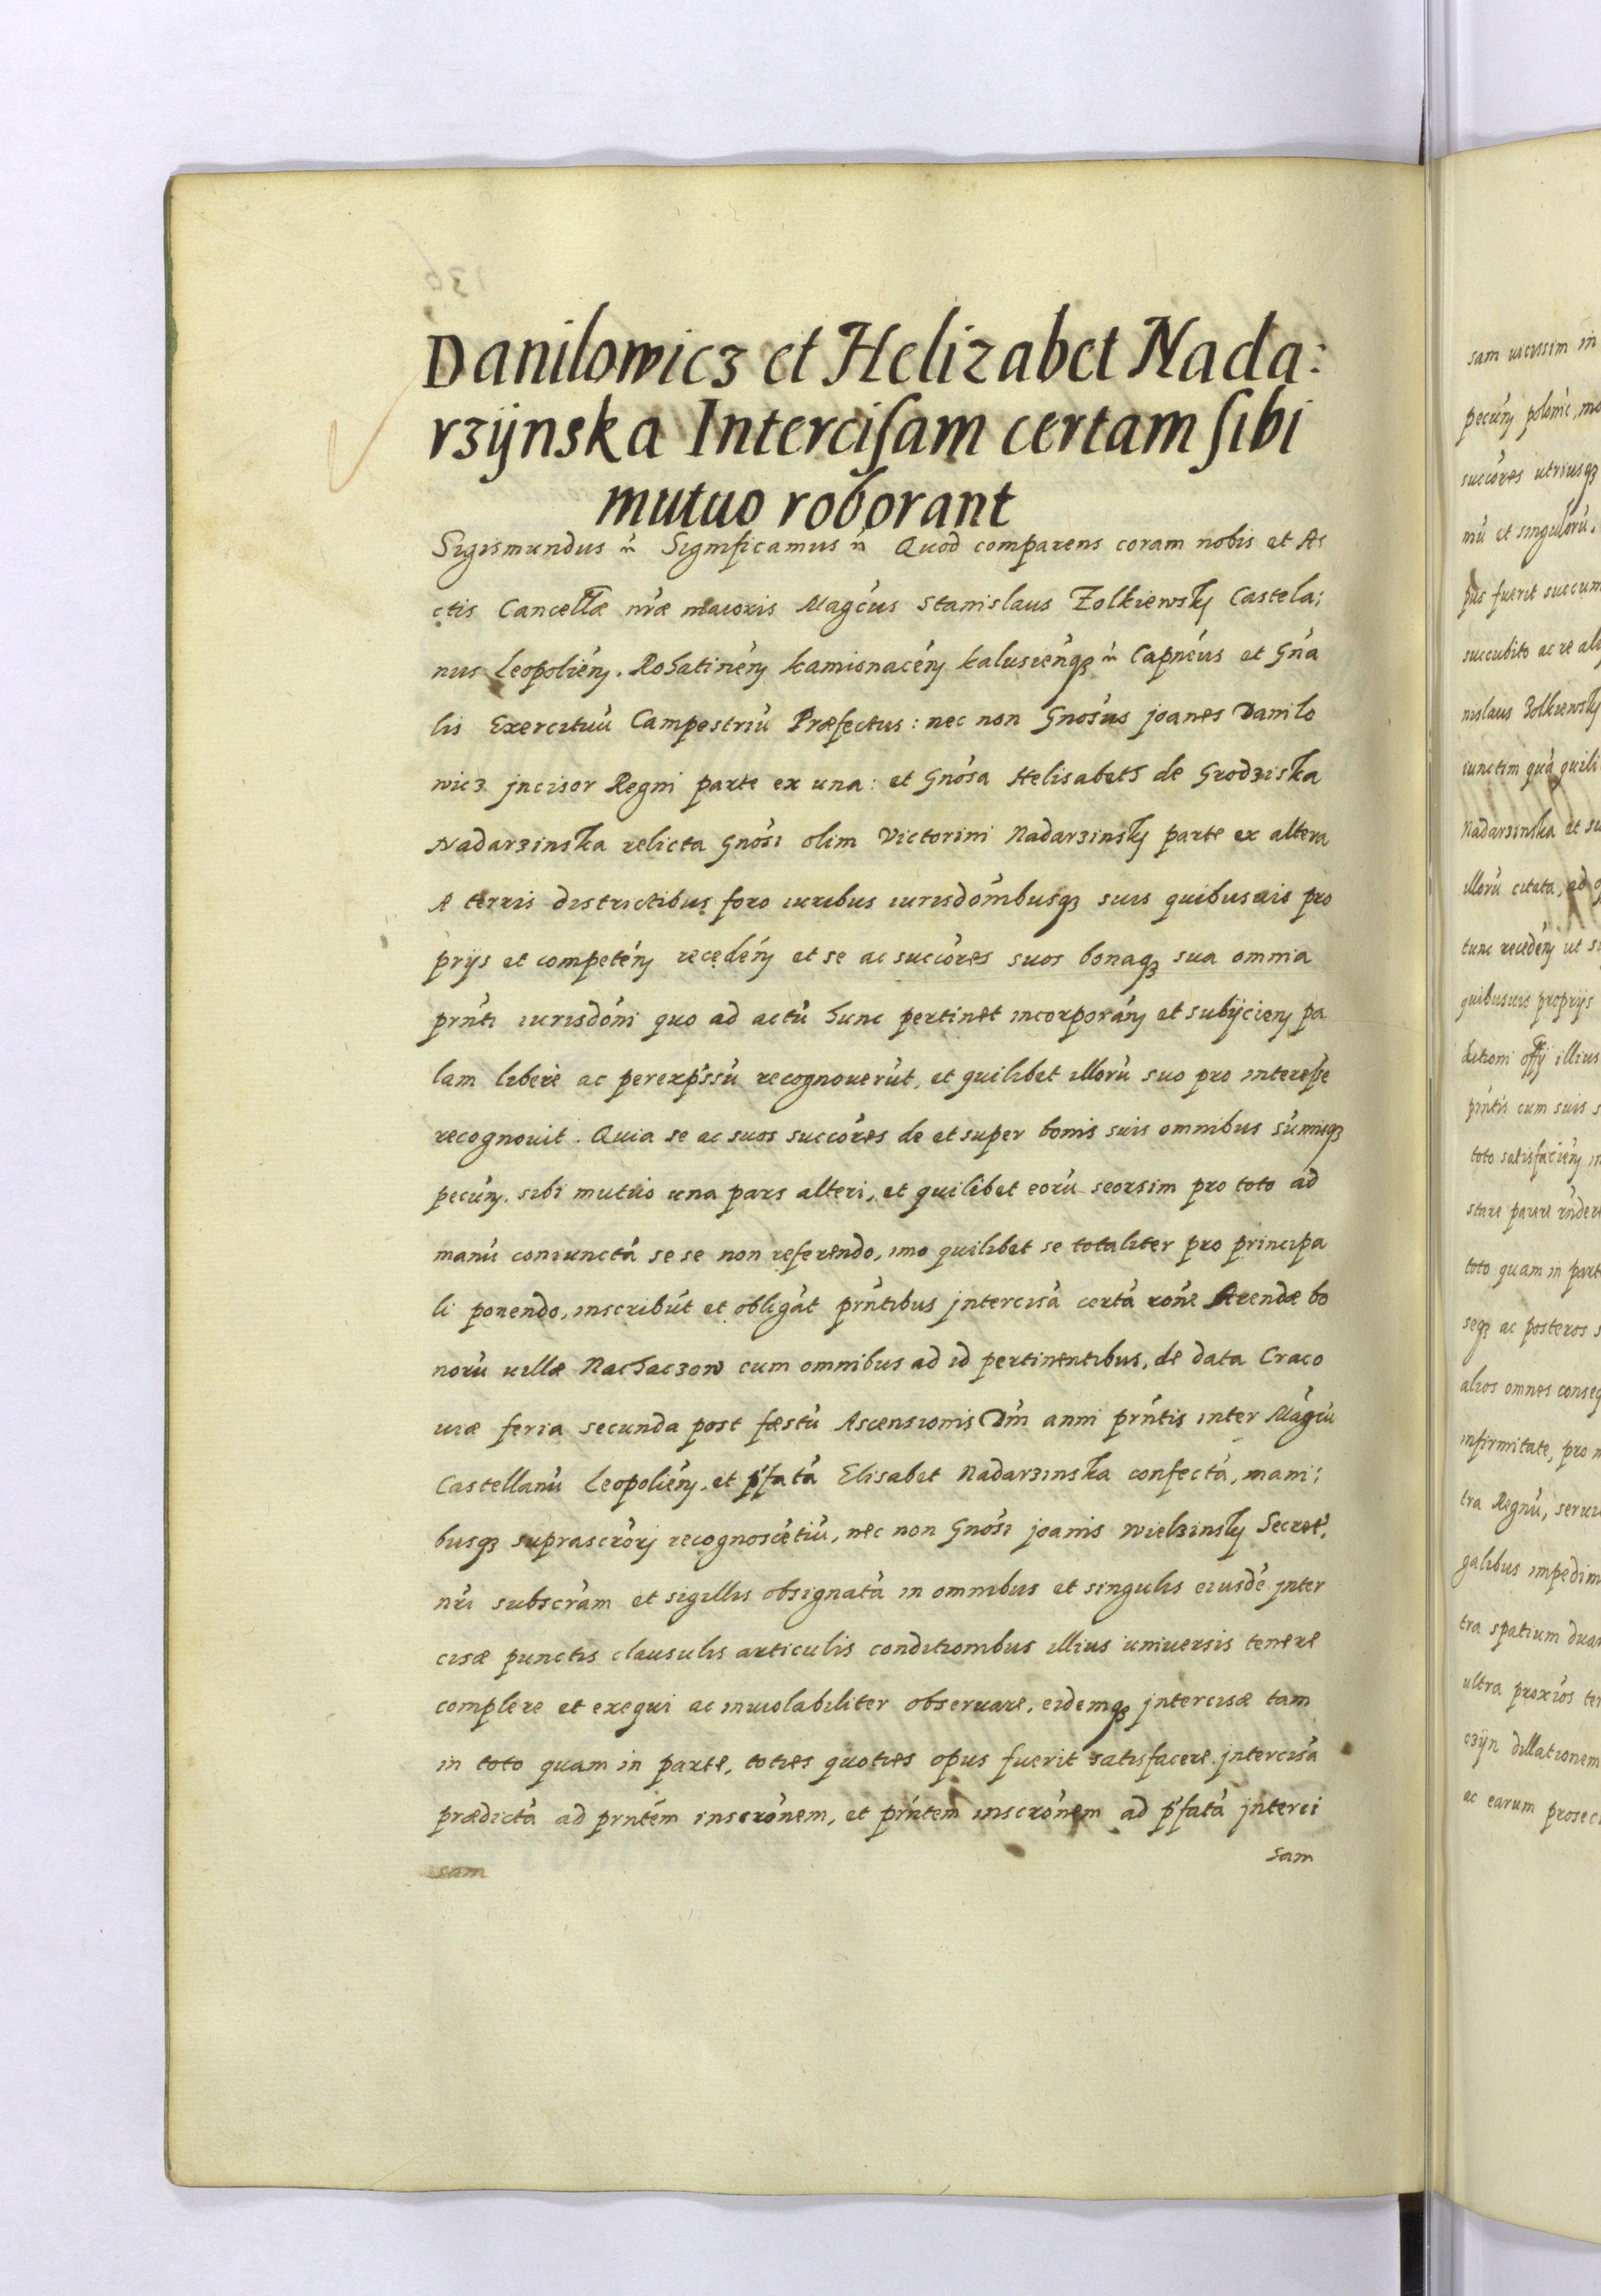 Danilowicz et Helizabet Nada:
rzÿnska Intercisam certam sibi
mutuo roborant
Sigismundus Significamus Quod comparens coram nobis et Ac
ctis Cancellæ nr̃æ maioris Magcus Stanislaus Zolkiewsky Castela:
nus Leopolien. Rohatinen kamionacen kalusienqz Capneus et Gn̄a
lis Exercituu Campestriu Præfectus: nec non Gnosus joanes Danilo
wicz jncisor Regni parte ex una: et Gnosa Helisabeth de Grodziska
Nadarzinska relicta Gnosi olim Victorini Nadarzinsky parte ex altera
A terris districtibus foro iuribus iurisdombusqz suis quibusuis pro
prijs et competen receden et se ac succores suos bonaqz sua omnia
prnti iurisdoni quo ad actu hunc pertinet incorporan et subijcien pa
lam libere ac perexpssu recognouerut, et quilibet illoru suo pro interesse
recognouit. Quia se ac suos succores de et super bonis suis omnibus sumiqz
pecun. sibi mutuo una pars alteri, et quilibet eoru seorsim pro toto ad
manu coniuncta se se non referendo, imo quilibet se totaliter pro principa
li ponendo, inscribut et obligat prntibus jntercisa certa rone Arendæ bo
noru uillæ Nachaczow cum omnibus ad id pertinentibus, de data Craco
uiæ feria secunda post fæstu Ascensionis Dni anni prntis inter Magcu
Castellanu Leopolien. et pfata Elisabet Nadarzinska confecta, mani:
busqz suprascrorj recognoscetiu, nec non Gnosi joanis wielzinsky Secret,
nri subscram et sigillis obsignata in omnibus et singulis eiusde jnter
cisæ punctis clausulis articulis conditionibus illius uniuersis tenere
complere et exequi ac inuiolabiliter obseruare, eidemqz jntercisæ tam
in toto quam in parte, toties quoties opus fuerit satisfacere. jntercisa
prædicta ad prntem inscronem, et prntem inscronem ad pfata jnterci
sam
sam
sam uicissim in
pecun polonic, mo
succores utriusqz
mu et singuloru,
pus fuerit succum
succubito ac re
nislaus Zolkiewsky
iunctim qua quili
Nadarzinska et su
illoru citata, ad
tunc receden ut
quibusuis proprijs
ditioni offij illius
prntis cum suis s
toto satisfacien in
stare parere rndere
toto quam in parte
seqz ac posteros s
alios omnes conseq
infirmitate, pro
tra Regnu, serui
galibus impedim
tra spatium dua
ultra proxios ter
czÿn dillationem
ac earum prosec